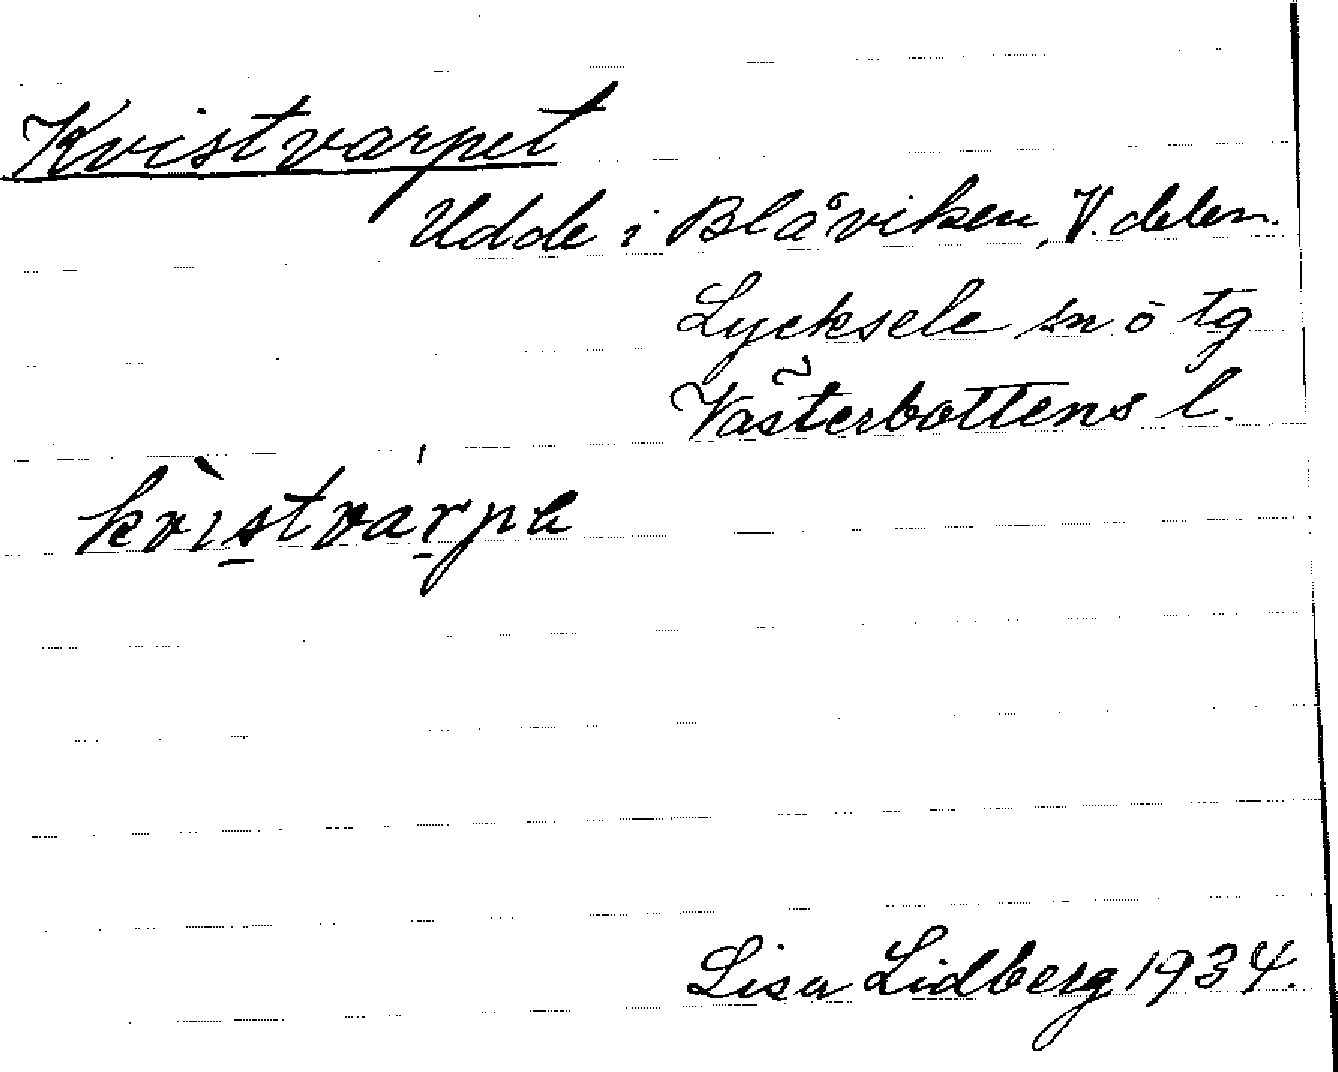 Kvistvarpet
Udde i Blåviken, V. delen.
Lycksele sn o tg
Västerbottens l.
kvìstvárpa
Lisa Lidberg 1934.